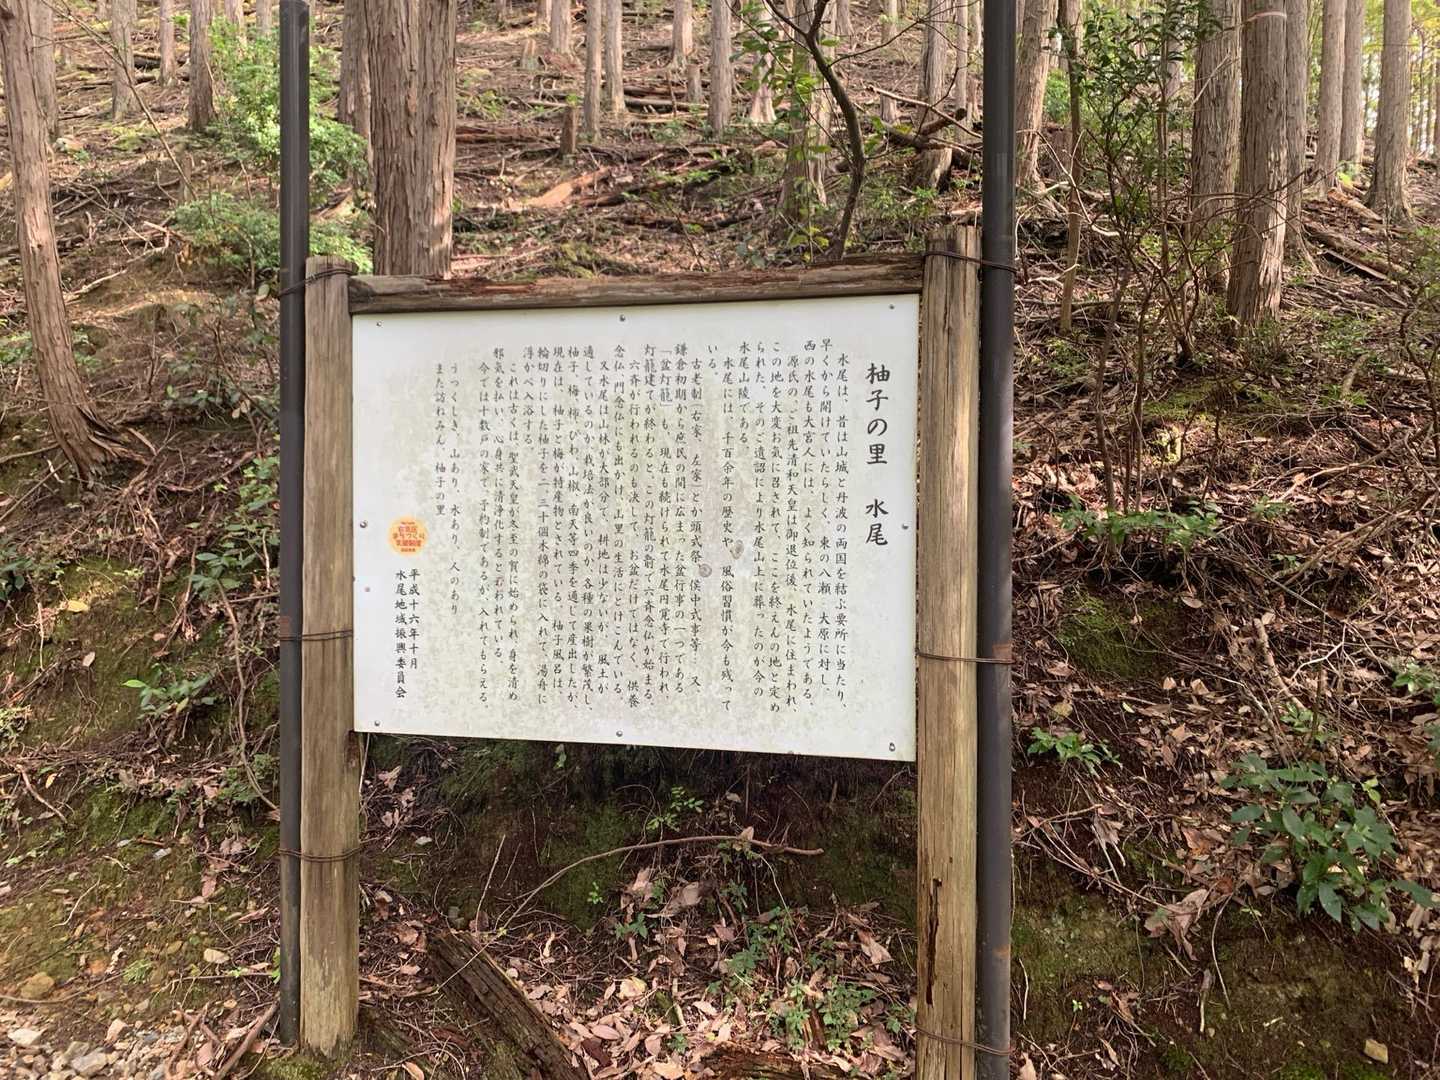 柚子の里　水尾
水尾は、昔は山城と丹波の両国を結ぶ要所に当たり、
早くから開けていたらしく、東の八瀬、大原に対し、
西の水尾も大宮人には、よく知られていたようである。
源氏の、ご祖先清和天皇は御退位後、水尾に住まわれ、
この地を大変お気に召されて、ここを終えんの地と定め
られた。そのご遺詔により水尾山上に葬ったのが今の
水尾山陵である。
水尾には、千百余年の歴史や、風俗習慣が今も残って
いる。
古老制（右家、左家）とか頭式祭、侯中式事等…又、
鎌倉初期から庶民の間に広まった盆行事の一つである
「盆灯籠」も、現在も続けられて水尾円覚寺で行われ
灯籠建てが終わると、この灯籠の前で六斉念仏が始まる。
六斉が行われるのも決して、お盆だけではなく、供養
念仏、門念仏にも出かけ、山里の生活にとけこんでいる
又水尾は山林が大部分で、耕地は少ないが、風土が
適しているのか、栽培法が良いのか、各種の果樹が繁茂し、
柚子、梅、柿、びわ、山椒、南天等四季を通して産出したが、
現在は、柚子と梅が特産物とされている。柚子風呂は、
輪切りにした柚子を二、三十個木綿の袋に入れて、湯舟に
浮かべ入浴する。
これは古くは、聖武天皇が冬至の賀に始められ、身を清め
邪気を払い、心身共に清浄化するといわれている。
今では十数戸の家で、予約制であるが、入れてもらえる。
うつくしき、山あり、水あり、人のあり
また訪ねみん、柚子の里
平成十六年十月
水尾地域振興委員会
右京区
まちづくり
支援制度